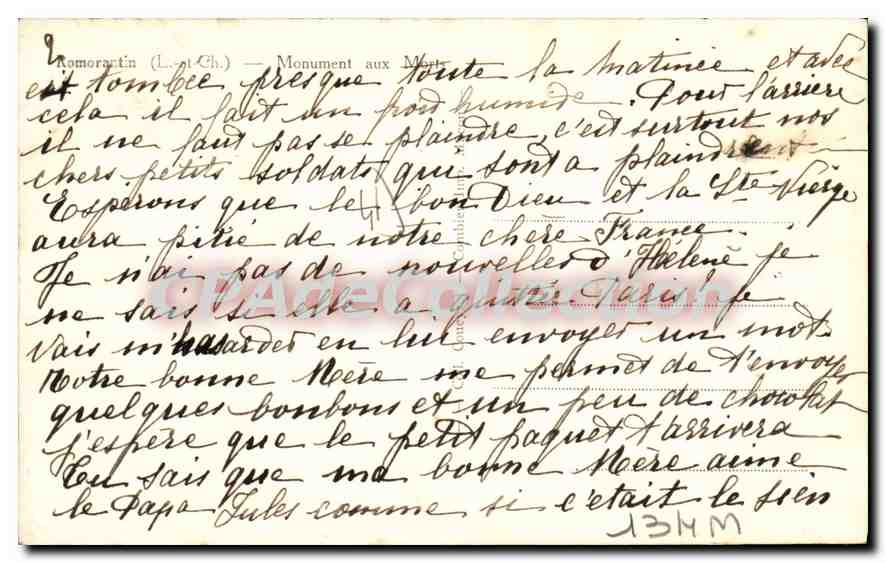 2
Romorantin (L.-et-Ch.) — Monument aux Morts
est tombée presque toute la matinée et avec
cela il fait un froid humide. Pour l'arrière
il ne faut pas se plaindre, c'est surtout nos
chers petits soldats qui sont a plaindre
Espérons que le bon Dieu et la Ste Vierge
aura pitié de notre chère France.
Je n'ai pas de nouvelles d'Hélène je
ne sais si elle a quitté Paris, je
vais m'hasarder en lui envoyer un mot.
Notre bonne Mère me permet de t'envoyer
quelques bonbons et un peu de chocolat
j'espère que le petit paquet t'arrivera
Tu sais que ma bonne Mère aime
le Papa Jules comme si c'était le sien
134M
CPACollection